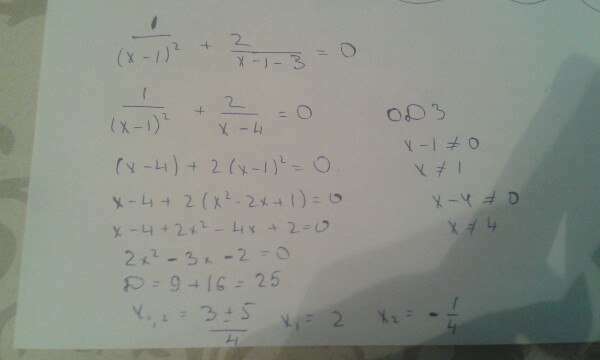 1/(x-1)² + 2/(x-1-3) = 0
1/(x-1)² + 2/(x-4) = 0
ОДЗ
x-1 ≠ 0
x ≠ 1
x-4 ≠ 0
x ≠ 4
(x-4) + 2(x-1)² = 0
x-4 + 2(x²-2x+1) = 0
x-4+2x²-4x+2=0
2x²-3x-2=0
D = 9+16 = 25
x₁,₂ = (3±5)/4 x₁ = 2 x₂ = -1/4